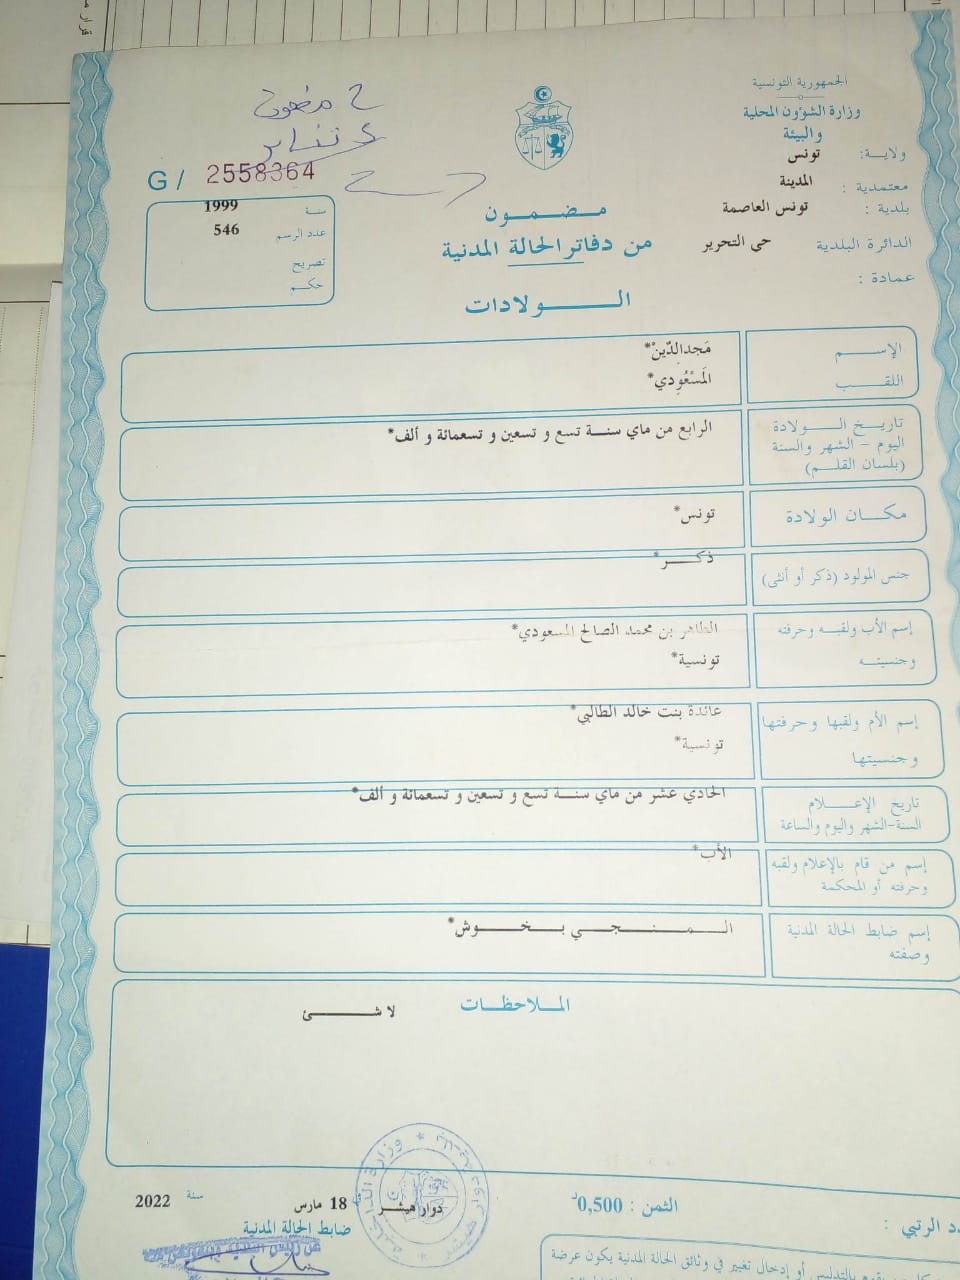 الجمهورية التونسية
وزارة الشؤون المحلية
والبيئة
ولاية: تونس
معتمدية : المدينة
بلدية : تونس العاصمة
الدائرة البلدية حى التحرير
عمادة :
G / 2558364
سنة 1999
عدد الرسم 546
تصريح
حكم
مضمون
من دفاتر الحالة المدنية
الولادات
الإسم مَجدالدّينْ*
اللقب المَسْعُودي*
تاريخ الولادة الرابع من ماي سنة تسع و تسعين و تسعمائة و ألف*
اليوم - الشهر والسنة
(بلسان القلم)
مكان الولادة تونس*
جنس المولود (ذكر أو أنثى) ذكر*
إسم الأب ولقبه وحرفته الطاهر بن محمد الصالح المسعودي*
وجنسيته تونسية*
إسم الأم ولقبها وحرفتها عائدة بنت خالد الطالبي*
وجنسيتها تونسية*
تاريخ الإعلام الحادي عشر من ماي سنة تسع و تسعين و تسعمائة و ألف*
السنة-الشهر واليوم والساعة
إسم من قام بالإعلام ولقبه الأب*
وحرفته أو المحكمة
إسم ضابط الحالة المدنية المنجي بخوش*
وصفته
الملاحظات
لا شئ
الثمن : 0,500د
دوار هيشر 18 مارس سنة 2022
ضابط الحالة المدنية
دد الرتبي :
بالتدليس أو إدخال تغيير في وثائق الحالة المدنية يكون عرضة